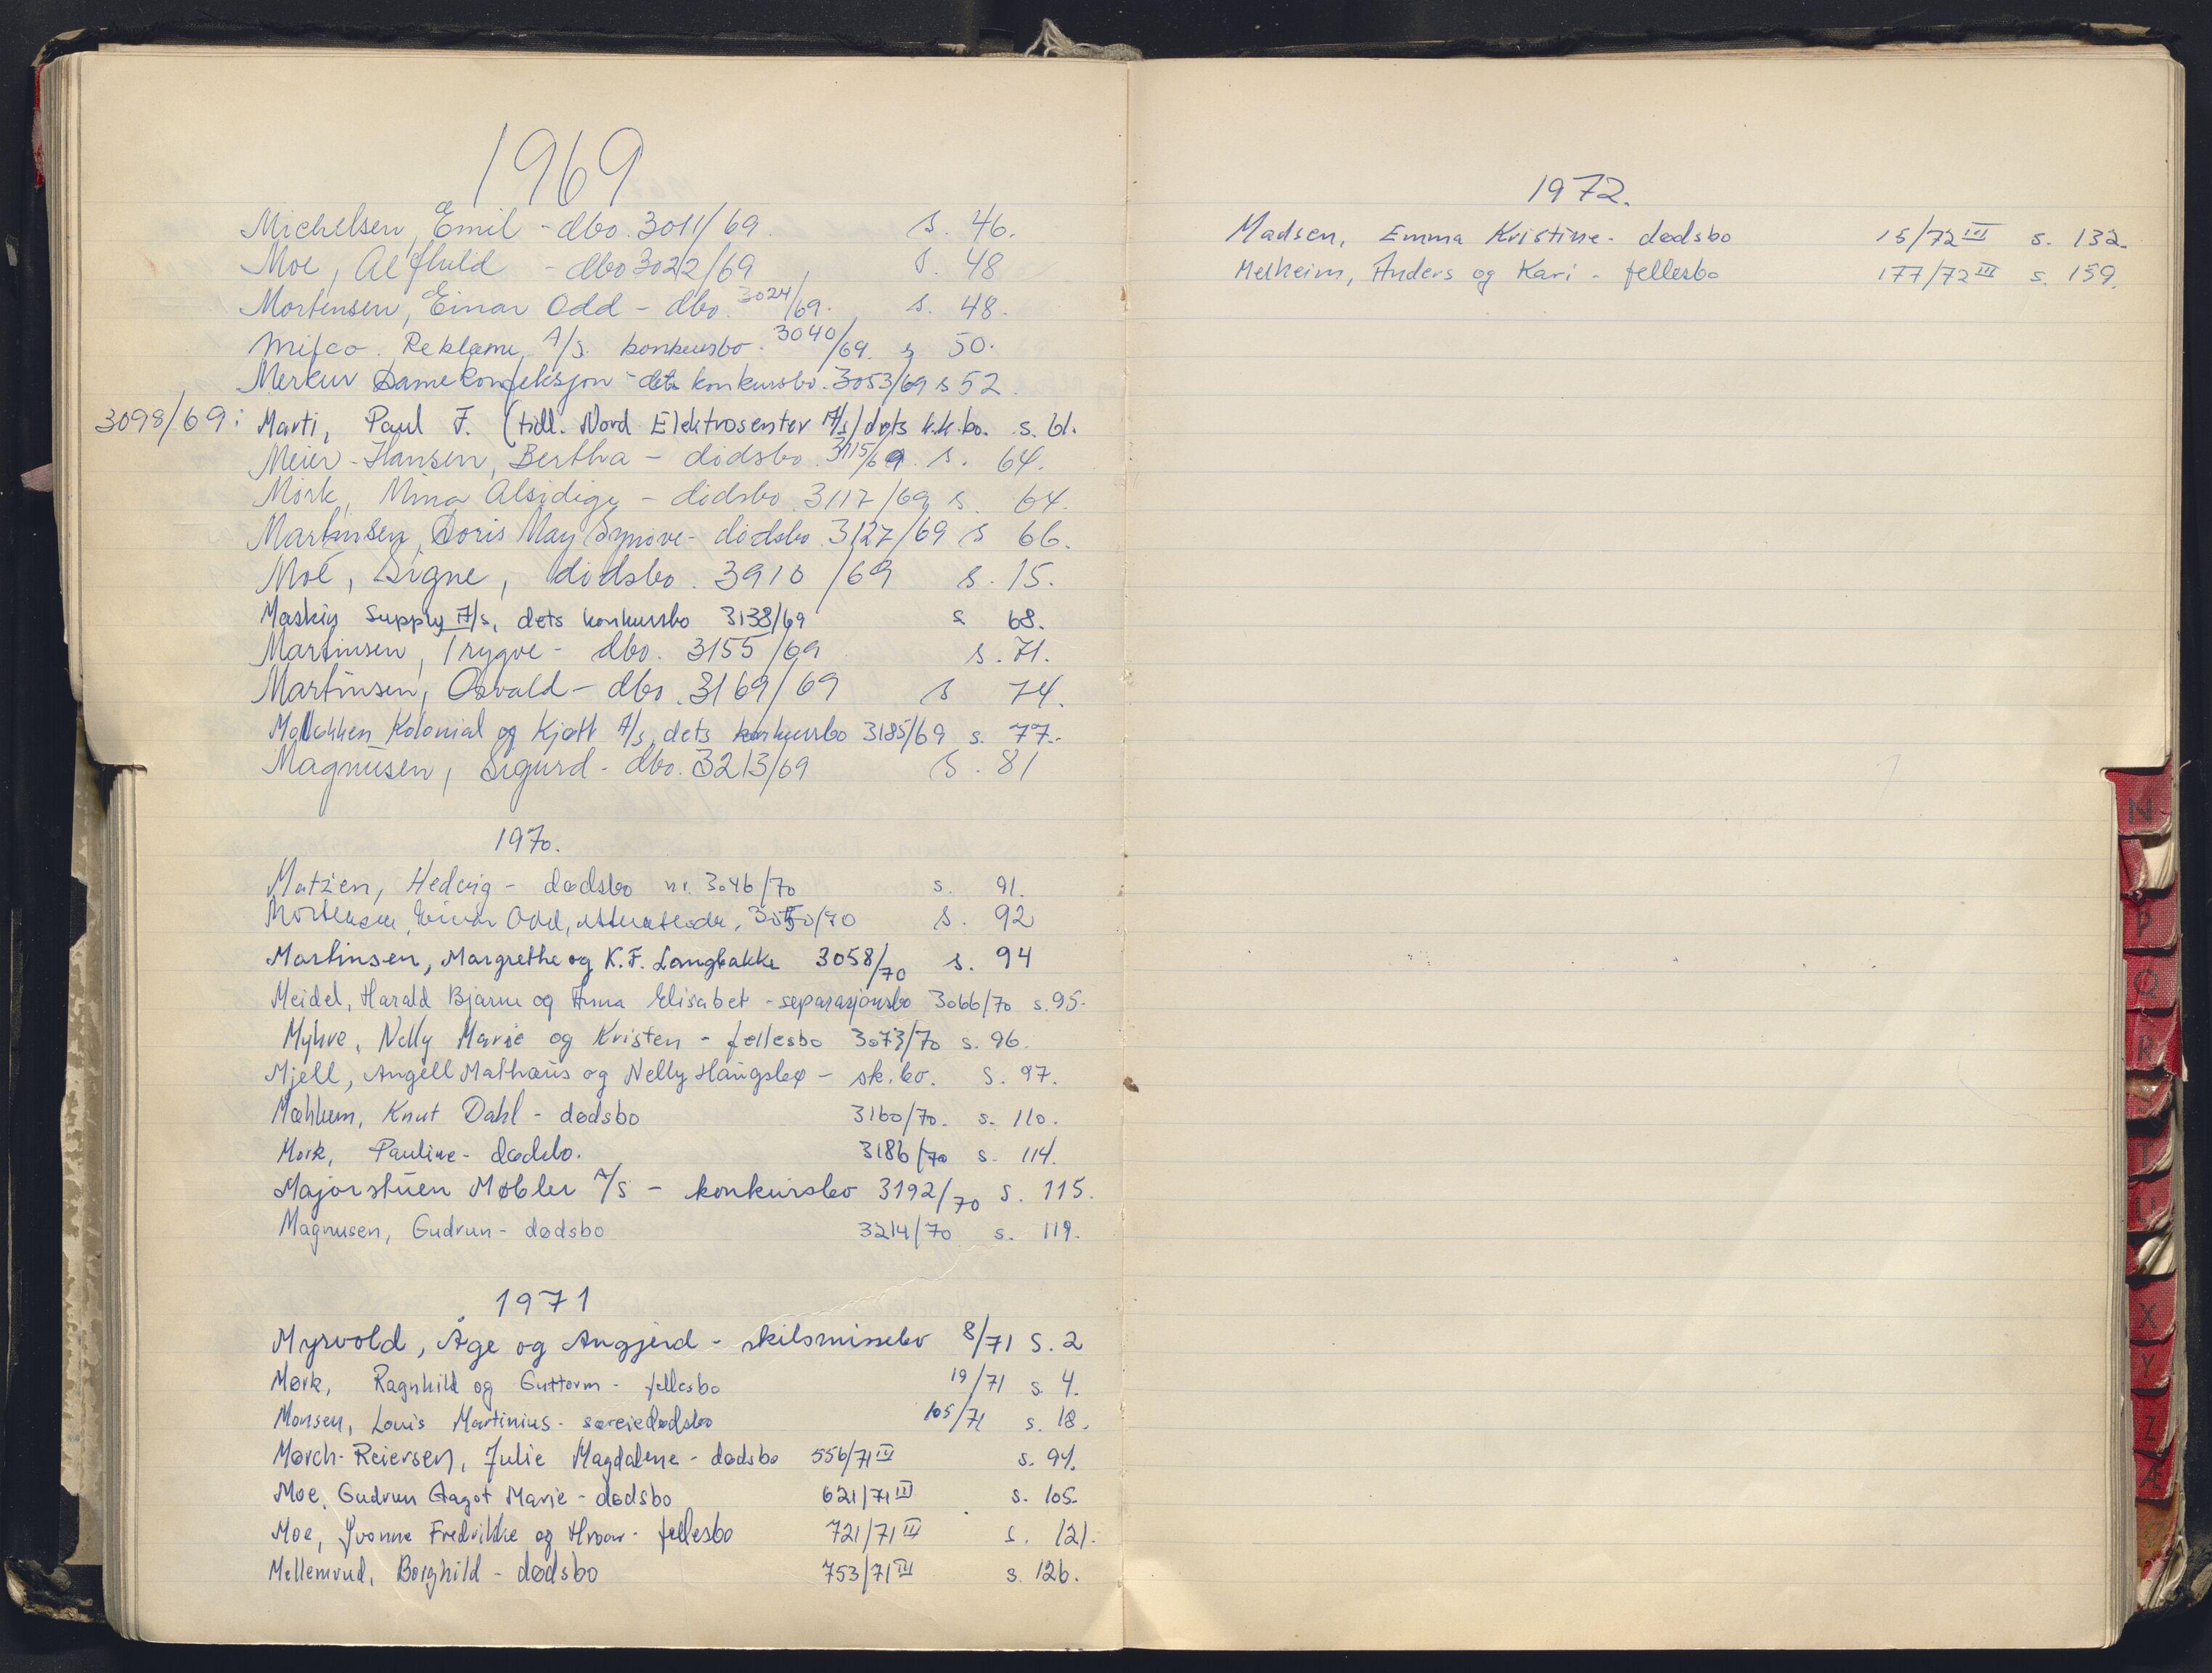 1969
Michelsen, Emil - dbo. 3011/69. s. 46.
Moe, Alfhild - dbo 3022/69, s. 48
Mortensen, Einar Odd - dbo. 3024/69. s. 48.
Mifco. Reklame A/S. konkursbo. 3040/69. s 50.
Merkur Damekonfeksjon - dets konkursbo. 3053/69 s 52.
3098/69: Marti, Paul F. (tidl. Nord Elektrosenter A/s) dets k.k.bo. s. 61.
Meier-Hansen, Bertha - dødsbo. 3115/69. s. 64.
Mørk, Mina Alsidige - dødsbo 3117/69 s. 64.
Martinsen, Doris May Synøve - dødsbo 3127/69 s 66.
Moe, Signe, dødsbo. 3910/69 s. 15.
Maskin Supply A/s, dets konkursbo 3138/69 s 68.
Martinsen, Trygve - dbo. 3155/69 s. 71.
Martinsen, Osvald - dbo. 3169/69 s 74.
Kolonial og Kjøtt A/s, dets konkursbo 3185/69 s. 77.
Magnusen, Sigurd - dbo. 3213/69 s. 81
1970.
Matzen, Hedvig - dødsbo nr. 3046/70 s. 91.
Mortensen, Einar Odd, 3050/70 s. 92
Martinsen, Margrethe og K.F. Langbakke 3058/70 s. 94
Meidel, Harald Bjarne og Anna Elisabet - separasjonsbo 3066/70 s. 95.
Myhre, Nelly Marie og Kristen - fellesbo 3073/70 s. 96.
Mjell, Angell Mathæus og Nelly Haugsbø - sk.bo. s. 97.
Mæhlum, Knut Dahl - dødsbo 3160/70. s. 110.
Mørk, Pauline - dødsbo. 3186/70 s. 114.
Majorstuen Møbler A/S - konkursbo 3192/70 s. 115.
Magnusen, Gudrun - dødsbo 3214/70 s. 119.
1971
Myrvold, Åge og Angjerd - skilsmissebo 8/71 s. 2
Mørk, Ragnhild og Guttorm - fellesbo 19/71 s. 4.
Monsen, Louis Martinius - særeiedødsbo 105/71 s. 18.
Mørch-Reiersen, Julie Magdalene - dødsbo 556/71 IV s. 94.
Moe, Gudrun Aagot Marie - dødsbo 621/71 III s. 105.
Moe, Yvonne Fredrikke og Hroar - fellesbo 721/71 IV s. 121.
Mellemrud, Borghild - dødsbo 753/71 IV s. 126.
1972.
Madsen, Emma Kristine - dødsbo 15/72 III s. 132.
Melheim, Anders og Kari - fellesbo 177/72 III s. 159.
N
P
Q
R
T
U
X
Y
Z
Æ